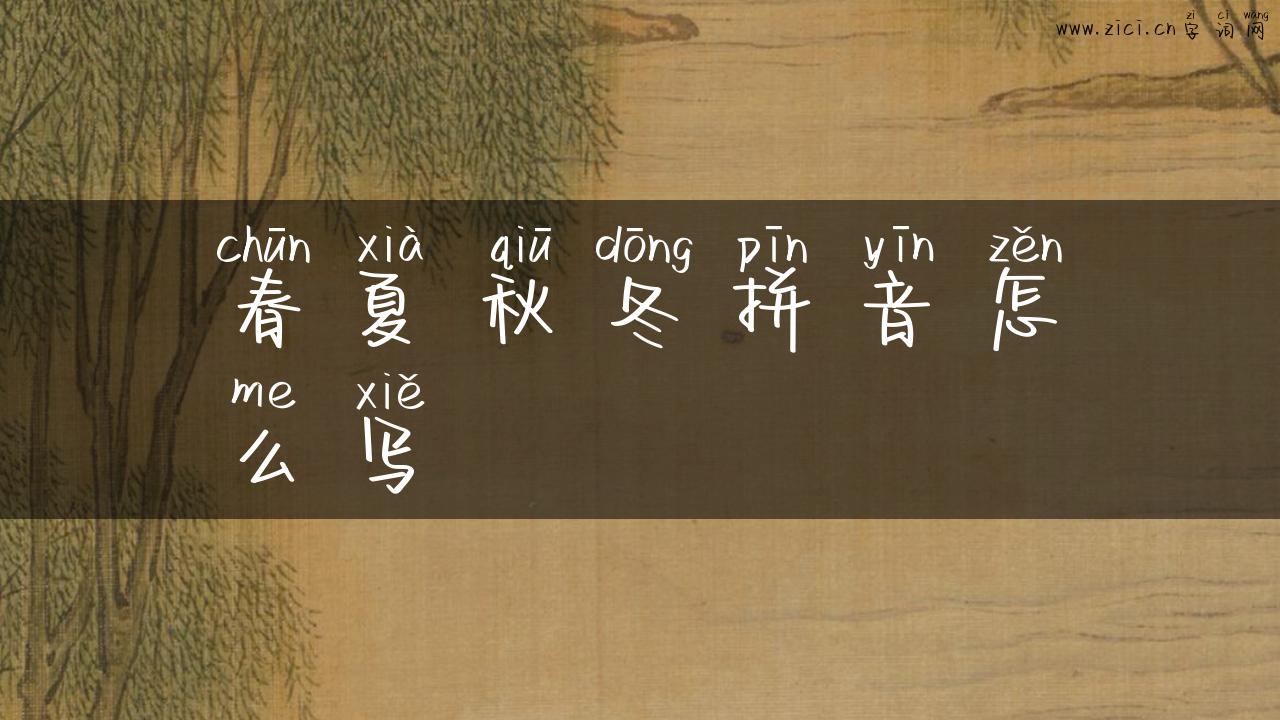 zì cí wǎng
www.zici.cn 字词网
chūn xià qiū dōng pīn yīn zěn
春夏秋冬拼音怎
me xiě
么写